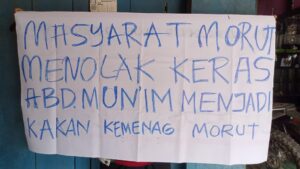 MASYARAT MORUT
MENOLAK KERAS
ABD. MUN'IM MENJADI
KAKAN KEMENAG MORUT